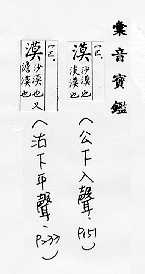 彙音寶鑑
(亡。
漠 沙漠也
淡漠也
(公下入聲.P.151)
(亡。
漠 沙漠也 又
澹漠也
(沽下平聲.P.233)